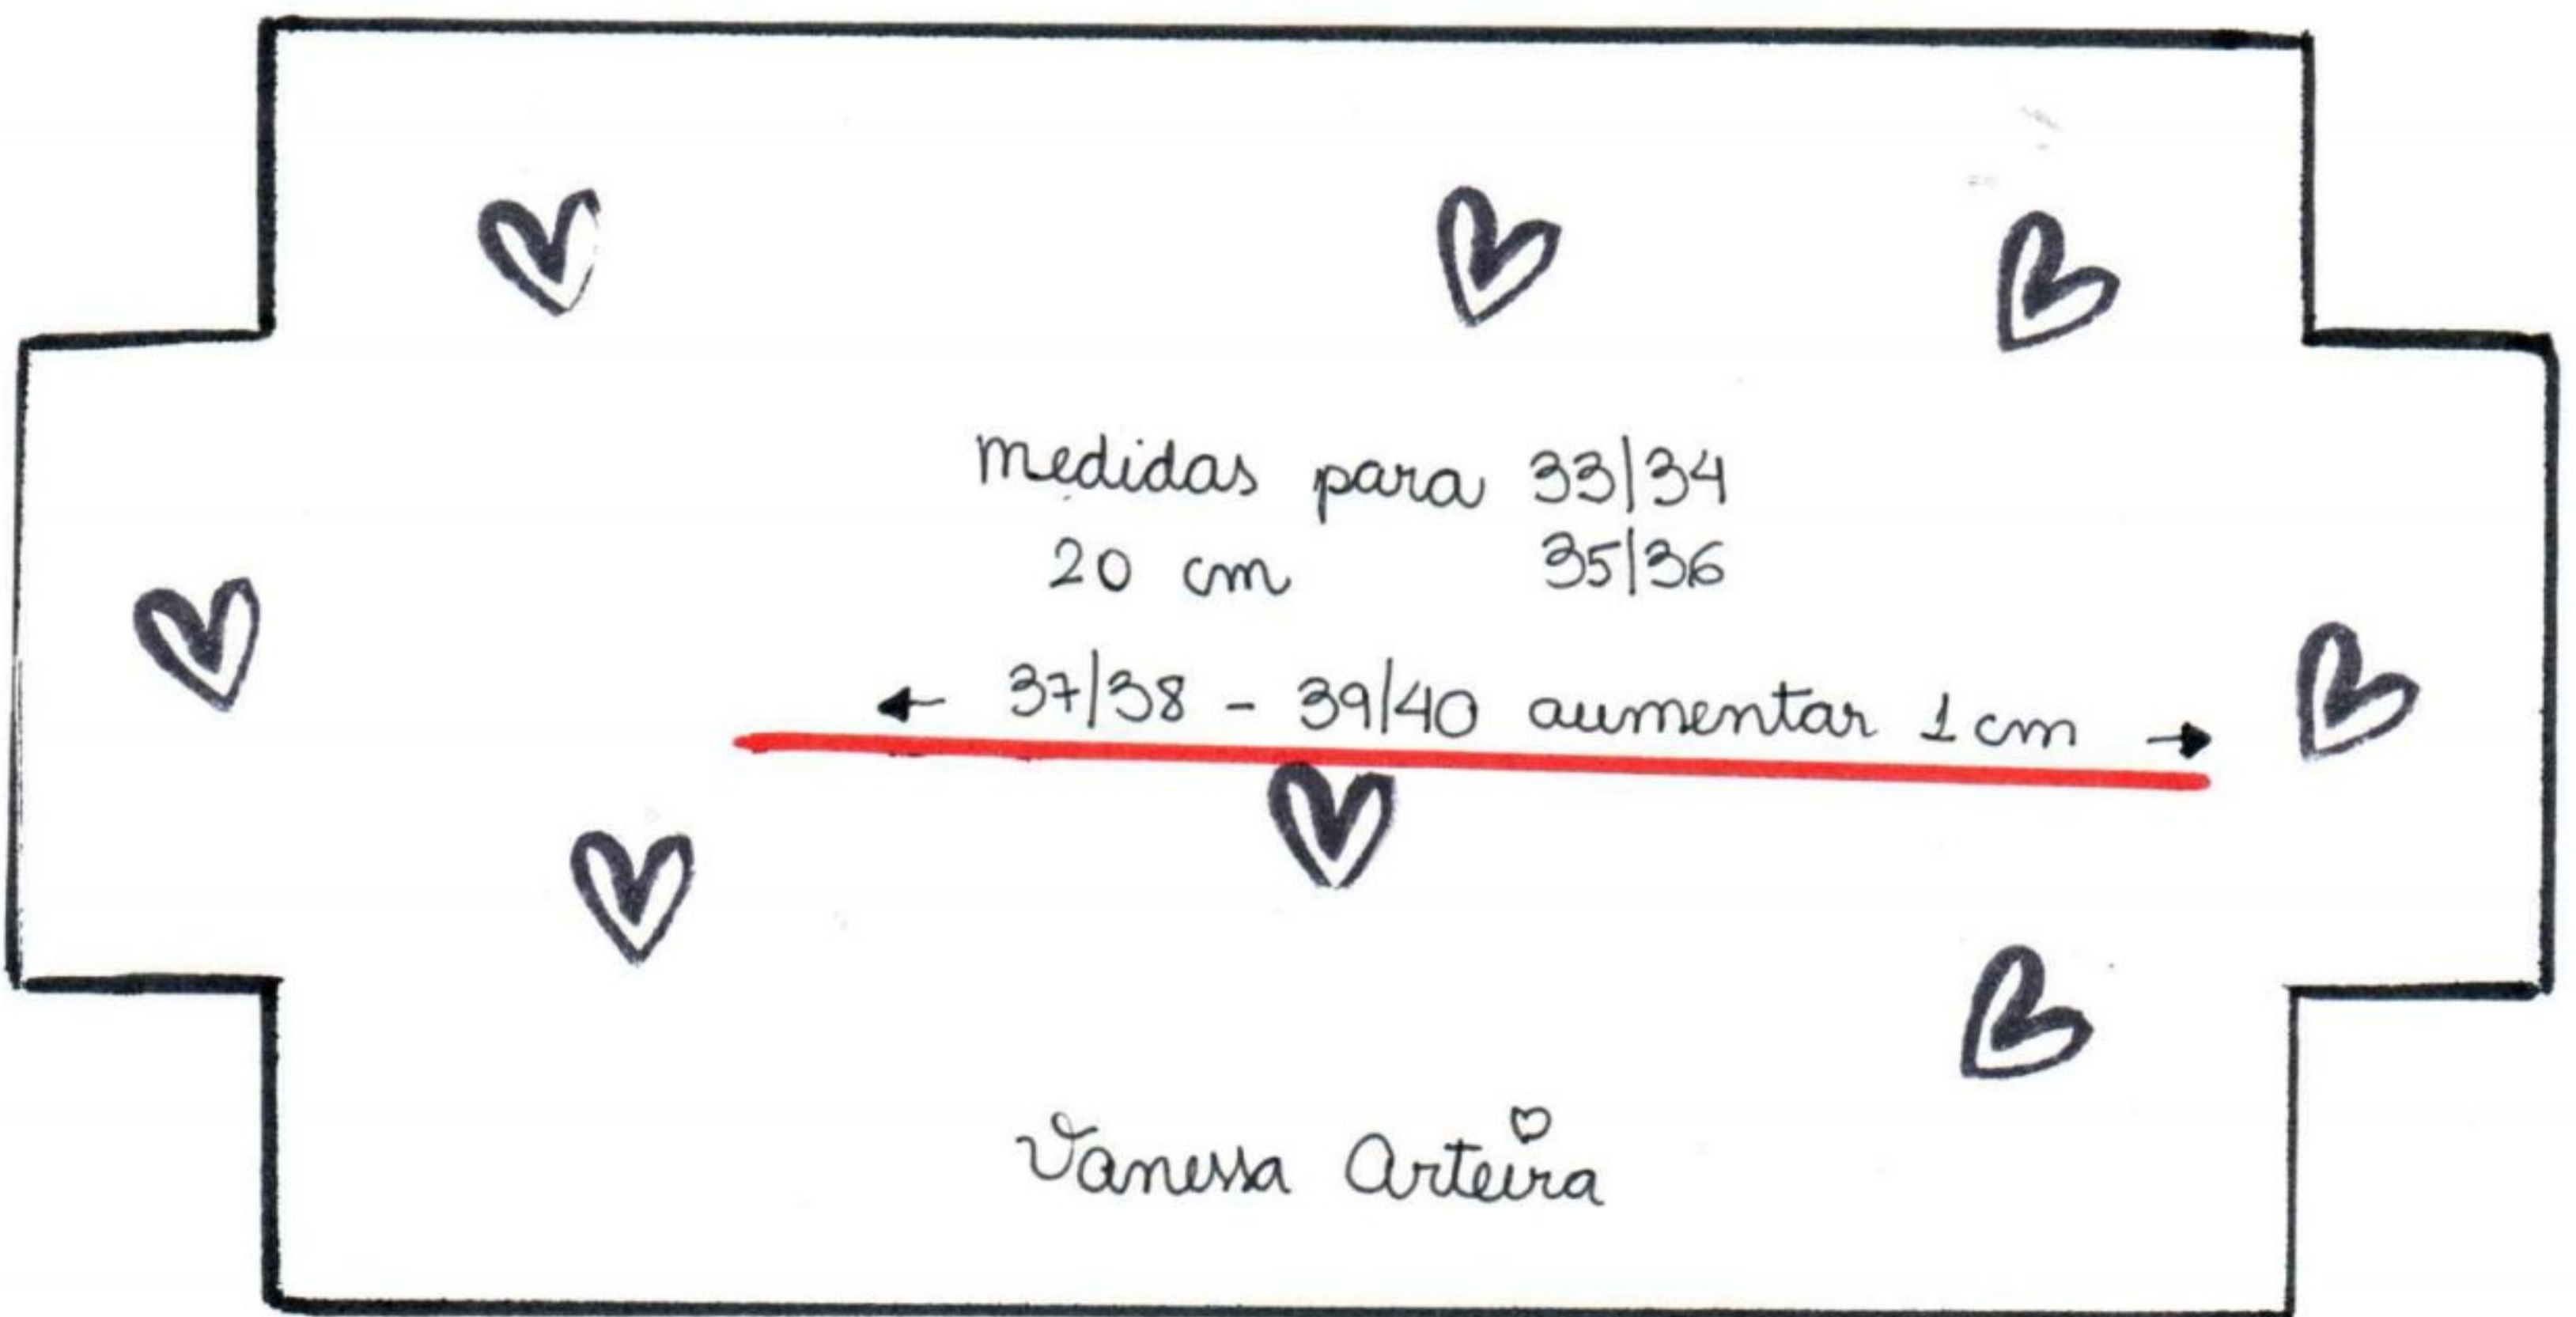 medidas para 33/34
20 cm 35/36
← 37/38 - 39/40 aumentar 1 cm →
Vanessa Arteira